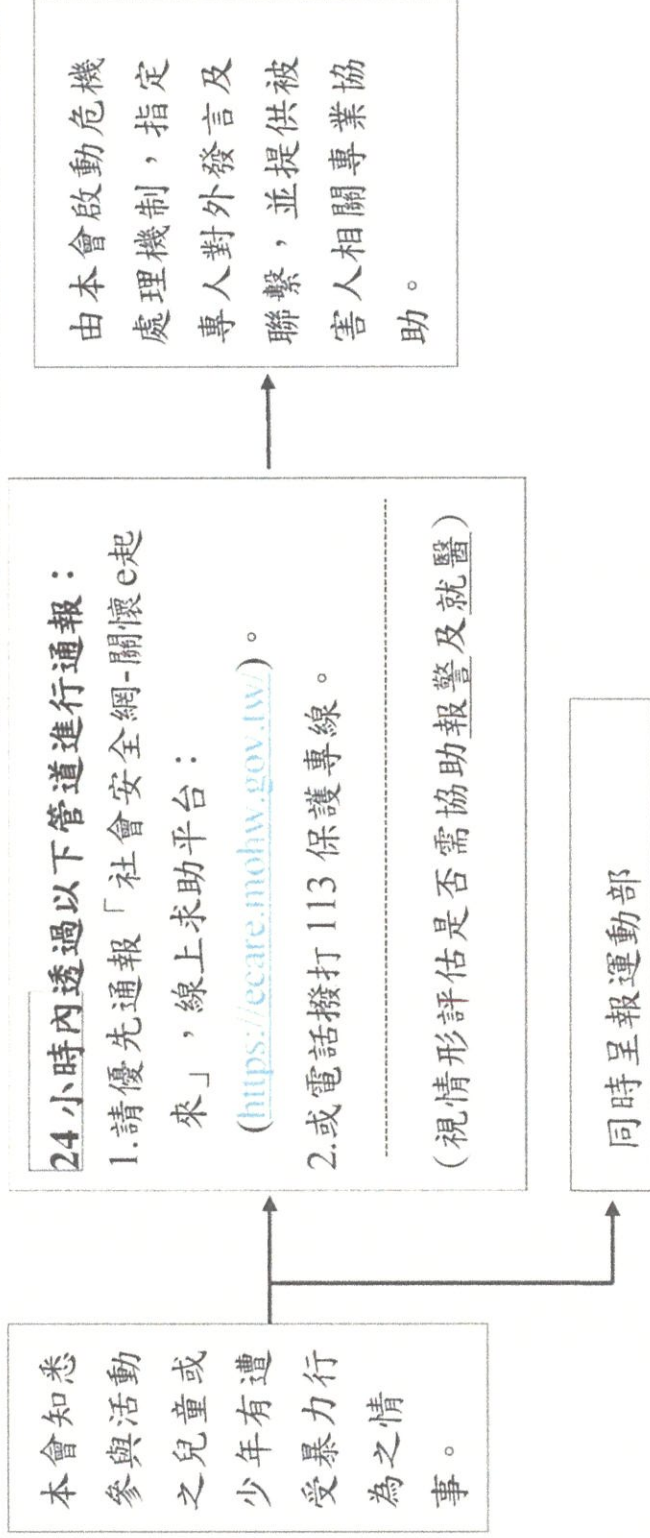 本會知悉
參與活動
之兒童或
少年有遭
受暴力行
為之情
事。
24 小時內透過以下管道進行通報：
1.請優先通報「社會安全網-關懷 e起
來」，線上求助平台：
(https://ecare.mohw.gov.tw/)。
2.或電話撥打 113 保護專線。
(視情形評估是否需協助報警及就醫)
同時呈報運動部
由本會啟動危機
處理機制，指定
專人對外發言及
聯繫，並提供被
害人相關專業協
助。